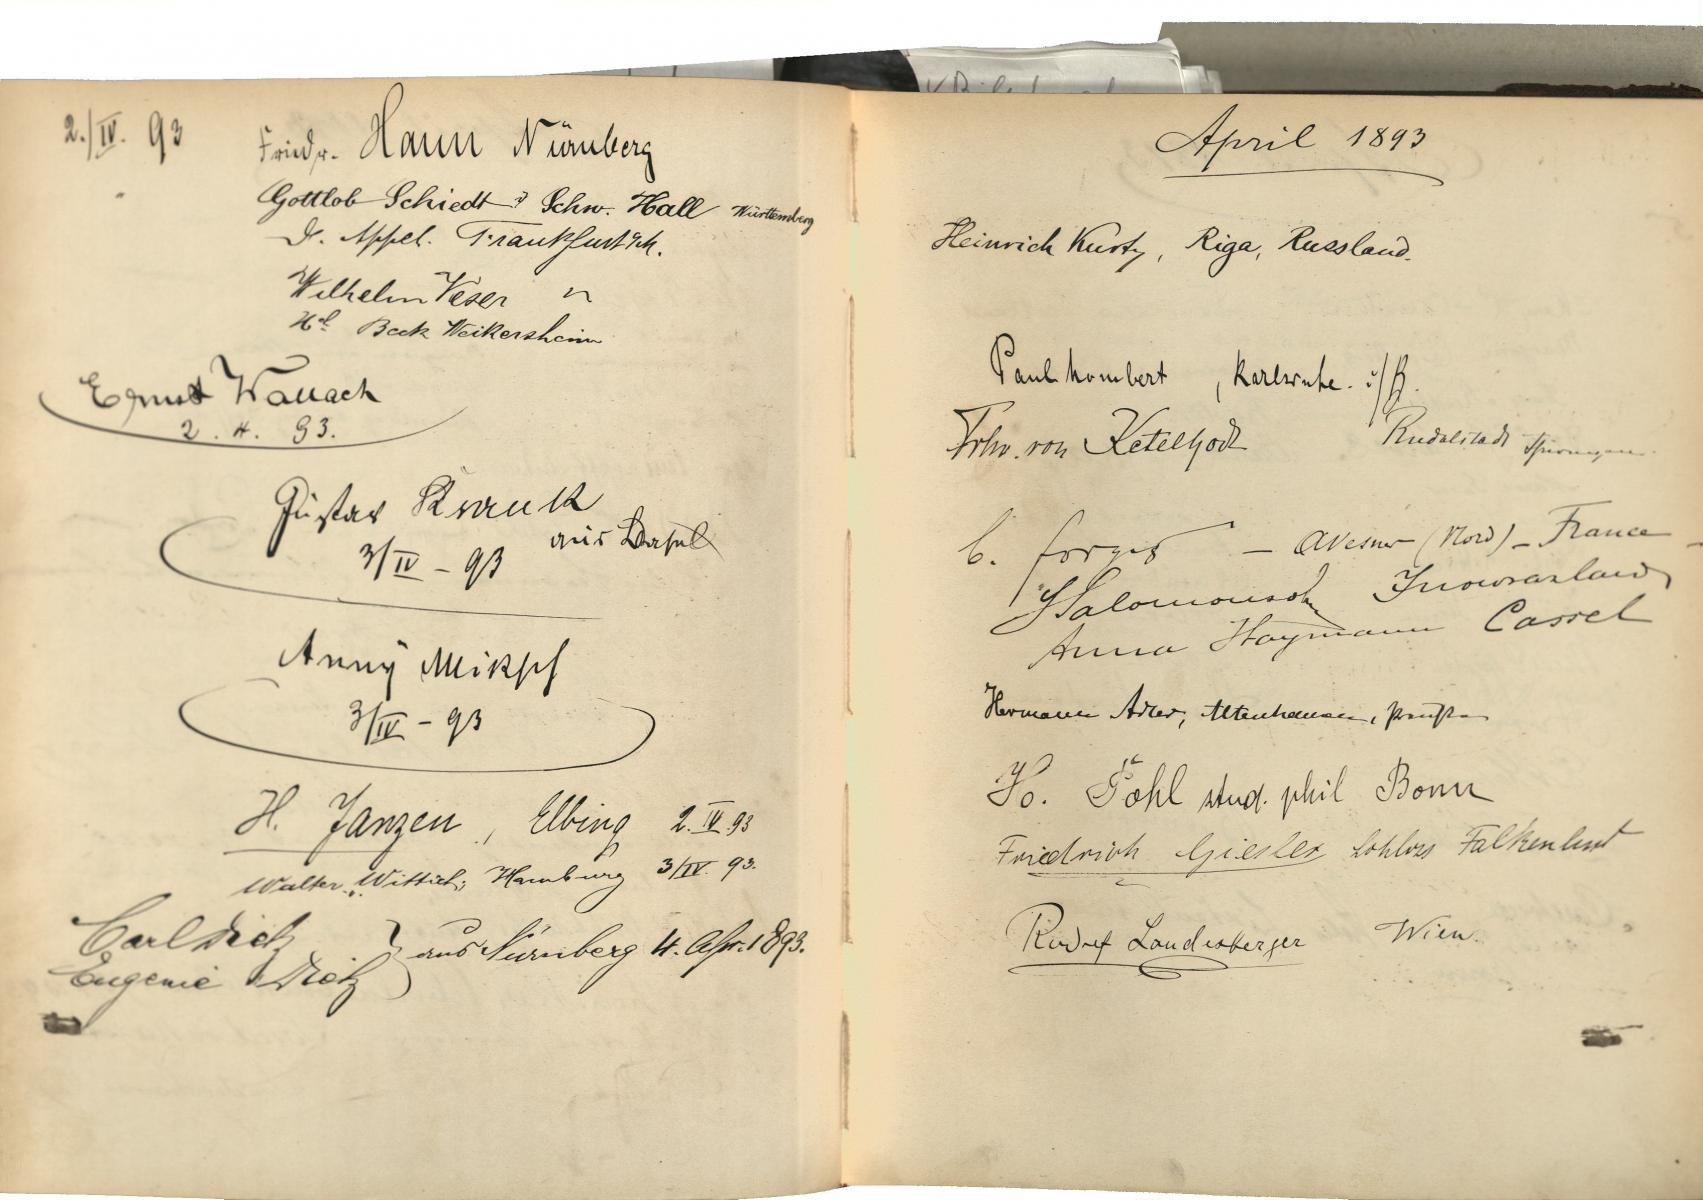 2./IV. 93
Friedr. Hann Nürnberg
Gottlob Schiedt Schw. Hall Württemberg
Dr. Appel. Frankfurt a/M.
Wilhelm Veser "
Beck Weikersheim
Ernst Wallach
2. 4. 93.
Gustav Krauk
aus Basel
3/IV - 93
Anny
3/IV - 93
H. Janzen, Elbing 2. IV. 93
Walter Wittich, Hamburg 3/IV. 93.
Carl Dietz
Eugenie Dietz } aus Nürnberg 4. Apr. 1893.
April 1893
Heinrich Kurtz, Riga, Russland.
Paul Kombert, Karlsruhe. i/B.
Frhr. von Ketelhodt Rudolstadt
C. forges - Avesnes (Nord) - France -
Salomonsohn Inowrazlaw
Anna Haymann Cassel
Hermann Adler,
Ho. Pohl stud. phil Bonn
Friedrich Giesler Schloss Falkenlust
Rudolf Landesberger Wien.